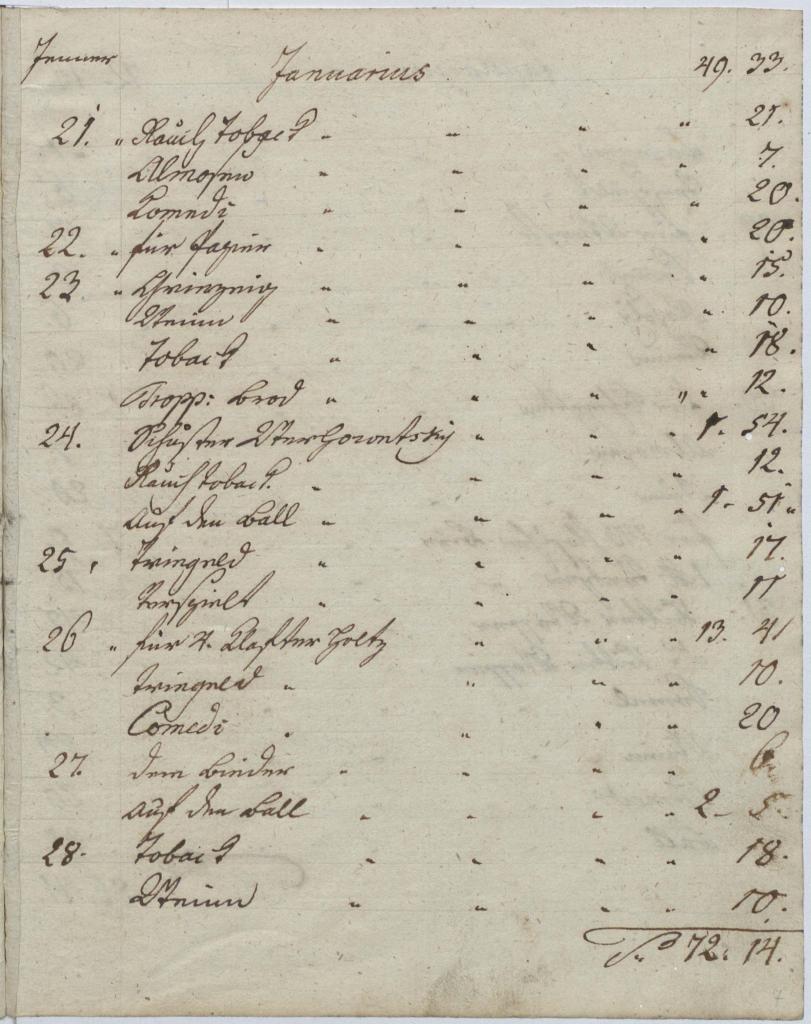 Jenner Januarius 49. 33.
21. " Rauch Toback " " " " 21.
Almosen " " " " 7.
Comedi " " " " 20.
22. " für Papier " " " " 20.
23 " " " " " 15.
" " " " 10.
Toback " " " " 18.
Kopp: Brod " " " " 12.
24. Schuster " " " 1. 54.
Rauchtoback " " " " 12.
auf den Ball " " " " 1 - 51 "
25 " Tringeld " " " " 17.
Verspielt " " " " 11
26 " für 4. Klafter Holtz " " " 13. 41
Tringeld " " " " 10.
Comedi " " " " 20
27. dem Binder " " " " 6.
auf den Ball " " " " 2 - 5.
28. Toback " " " " 18.
" " " " 10.
72. 14.